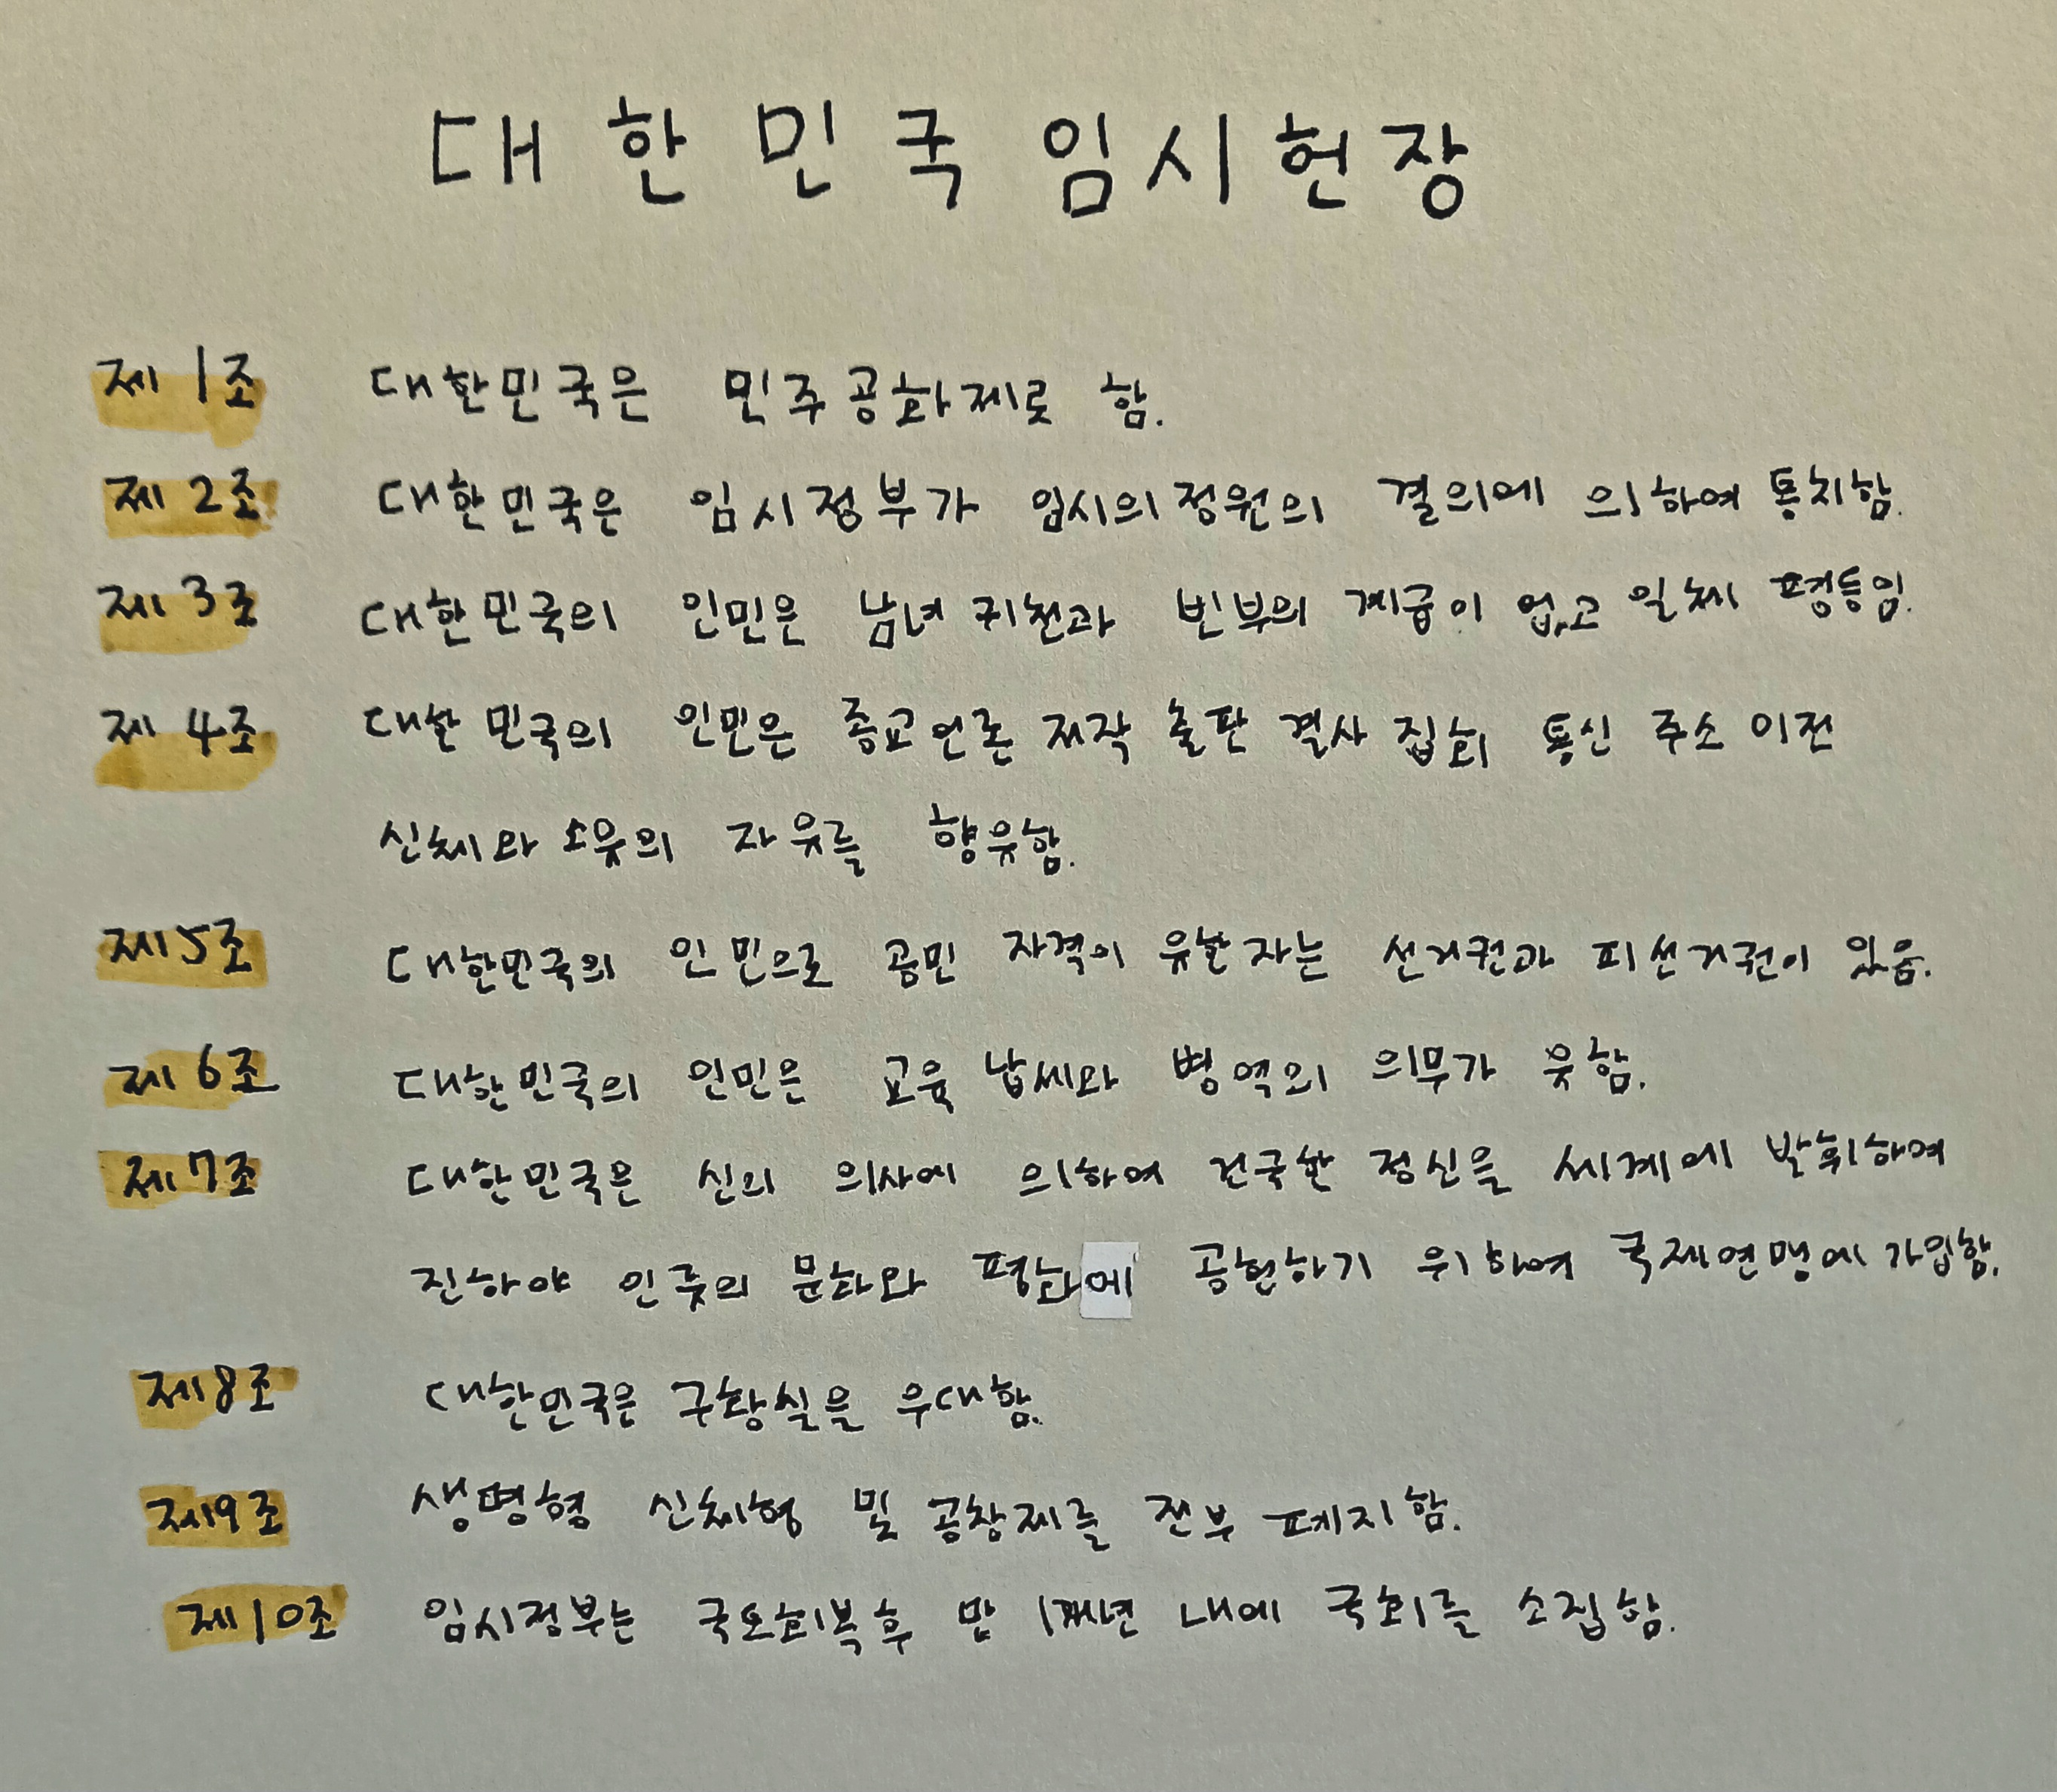 대한민국임시헌장
제1조 대한민국은 민주공화제로 함.
제2조 대한민국은 임시정부가 임시의정원의 결의에 의하여 통치함.
제3조 대한민국의 인민은 남녀 귀천과 빈부의 계급이 없고 일체 평등임.
제4조 대한민국의 인민은 종교언론 저작 출판 결사 집회 통신 주소 이전
신체와 소유의 자유를 향유함.
제5조 대한민국의 인민으로 공민 자격이 유한자는 선거권과 피선거권이 있음.
제6조 대한민국의 인민은 교육 납세와 병역의 의무가 유함.
제7조 대한민국은 신의 의사에 의하여 건국한 정신을 세계에 발휘하여
진하야 인류의 문화와 평화에 공헌하기 위하여 국제연맹에 가입함.
제8조 대한민국은 구황실을 우대함.
제9조 생명형 신체형 및 공창제를 전부 폐지함.
제10조 임시정부는 국토회복후 만 1개년 내에 국회를 소집함.